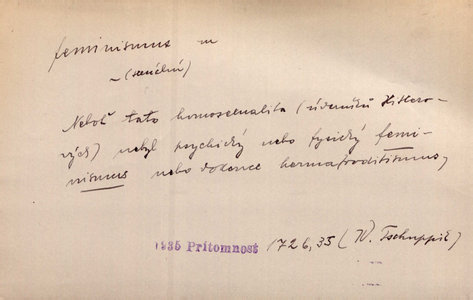 feminismus m
~ (sexuální)
Neboť tato homosexualita (úderníků Hitlero-
vých) nebyl psychický nebo fysický femi-
nismus nebo dokonce hermafroditismus,
1935 Přítomnost 1726,35 (W. Tschuppik)